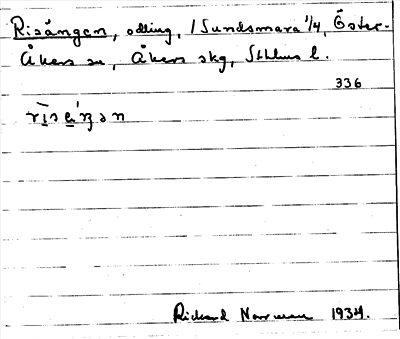 Risängen, odling, / Sundsmara 1/4, Öster-
Åkers sn, Åkers skg, Sthlms l.
336
Rickard Norrman 1934.